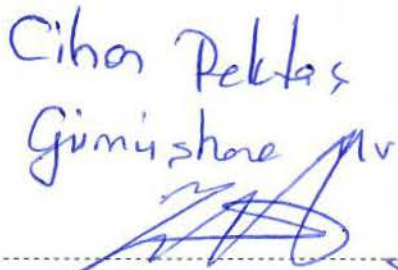 Cihan Pektaş
Gümüşhane Mv